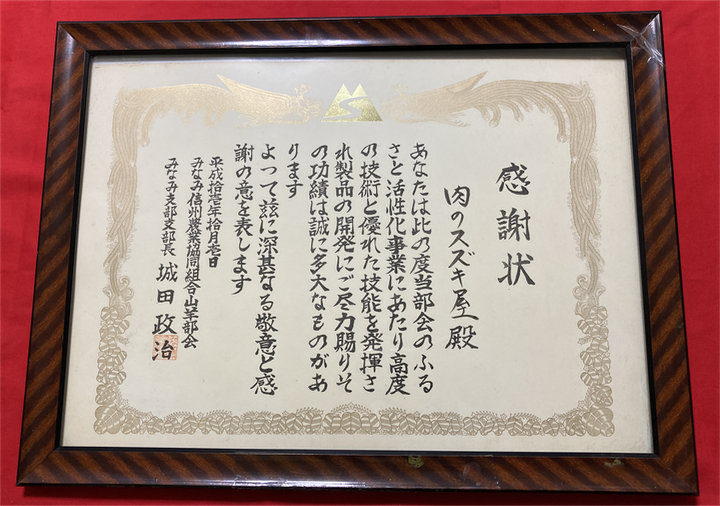 感謝状
肉のスズキ屋殿
あなたは此の度当部会のふる
さと活性化事業にあたり高度
の技術と優れた技能を発揮さ
れ製品の開発にご尽力賜りそ
の功績は誠に多大なものがあ
ります
よって茲に深甚なる敬意と感
謝の意を表します
平成拾壱年拾月壱日
みなみ信州農業協同組合山羊部会
みなみ支部支部長 城田政治